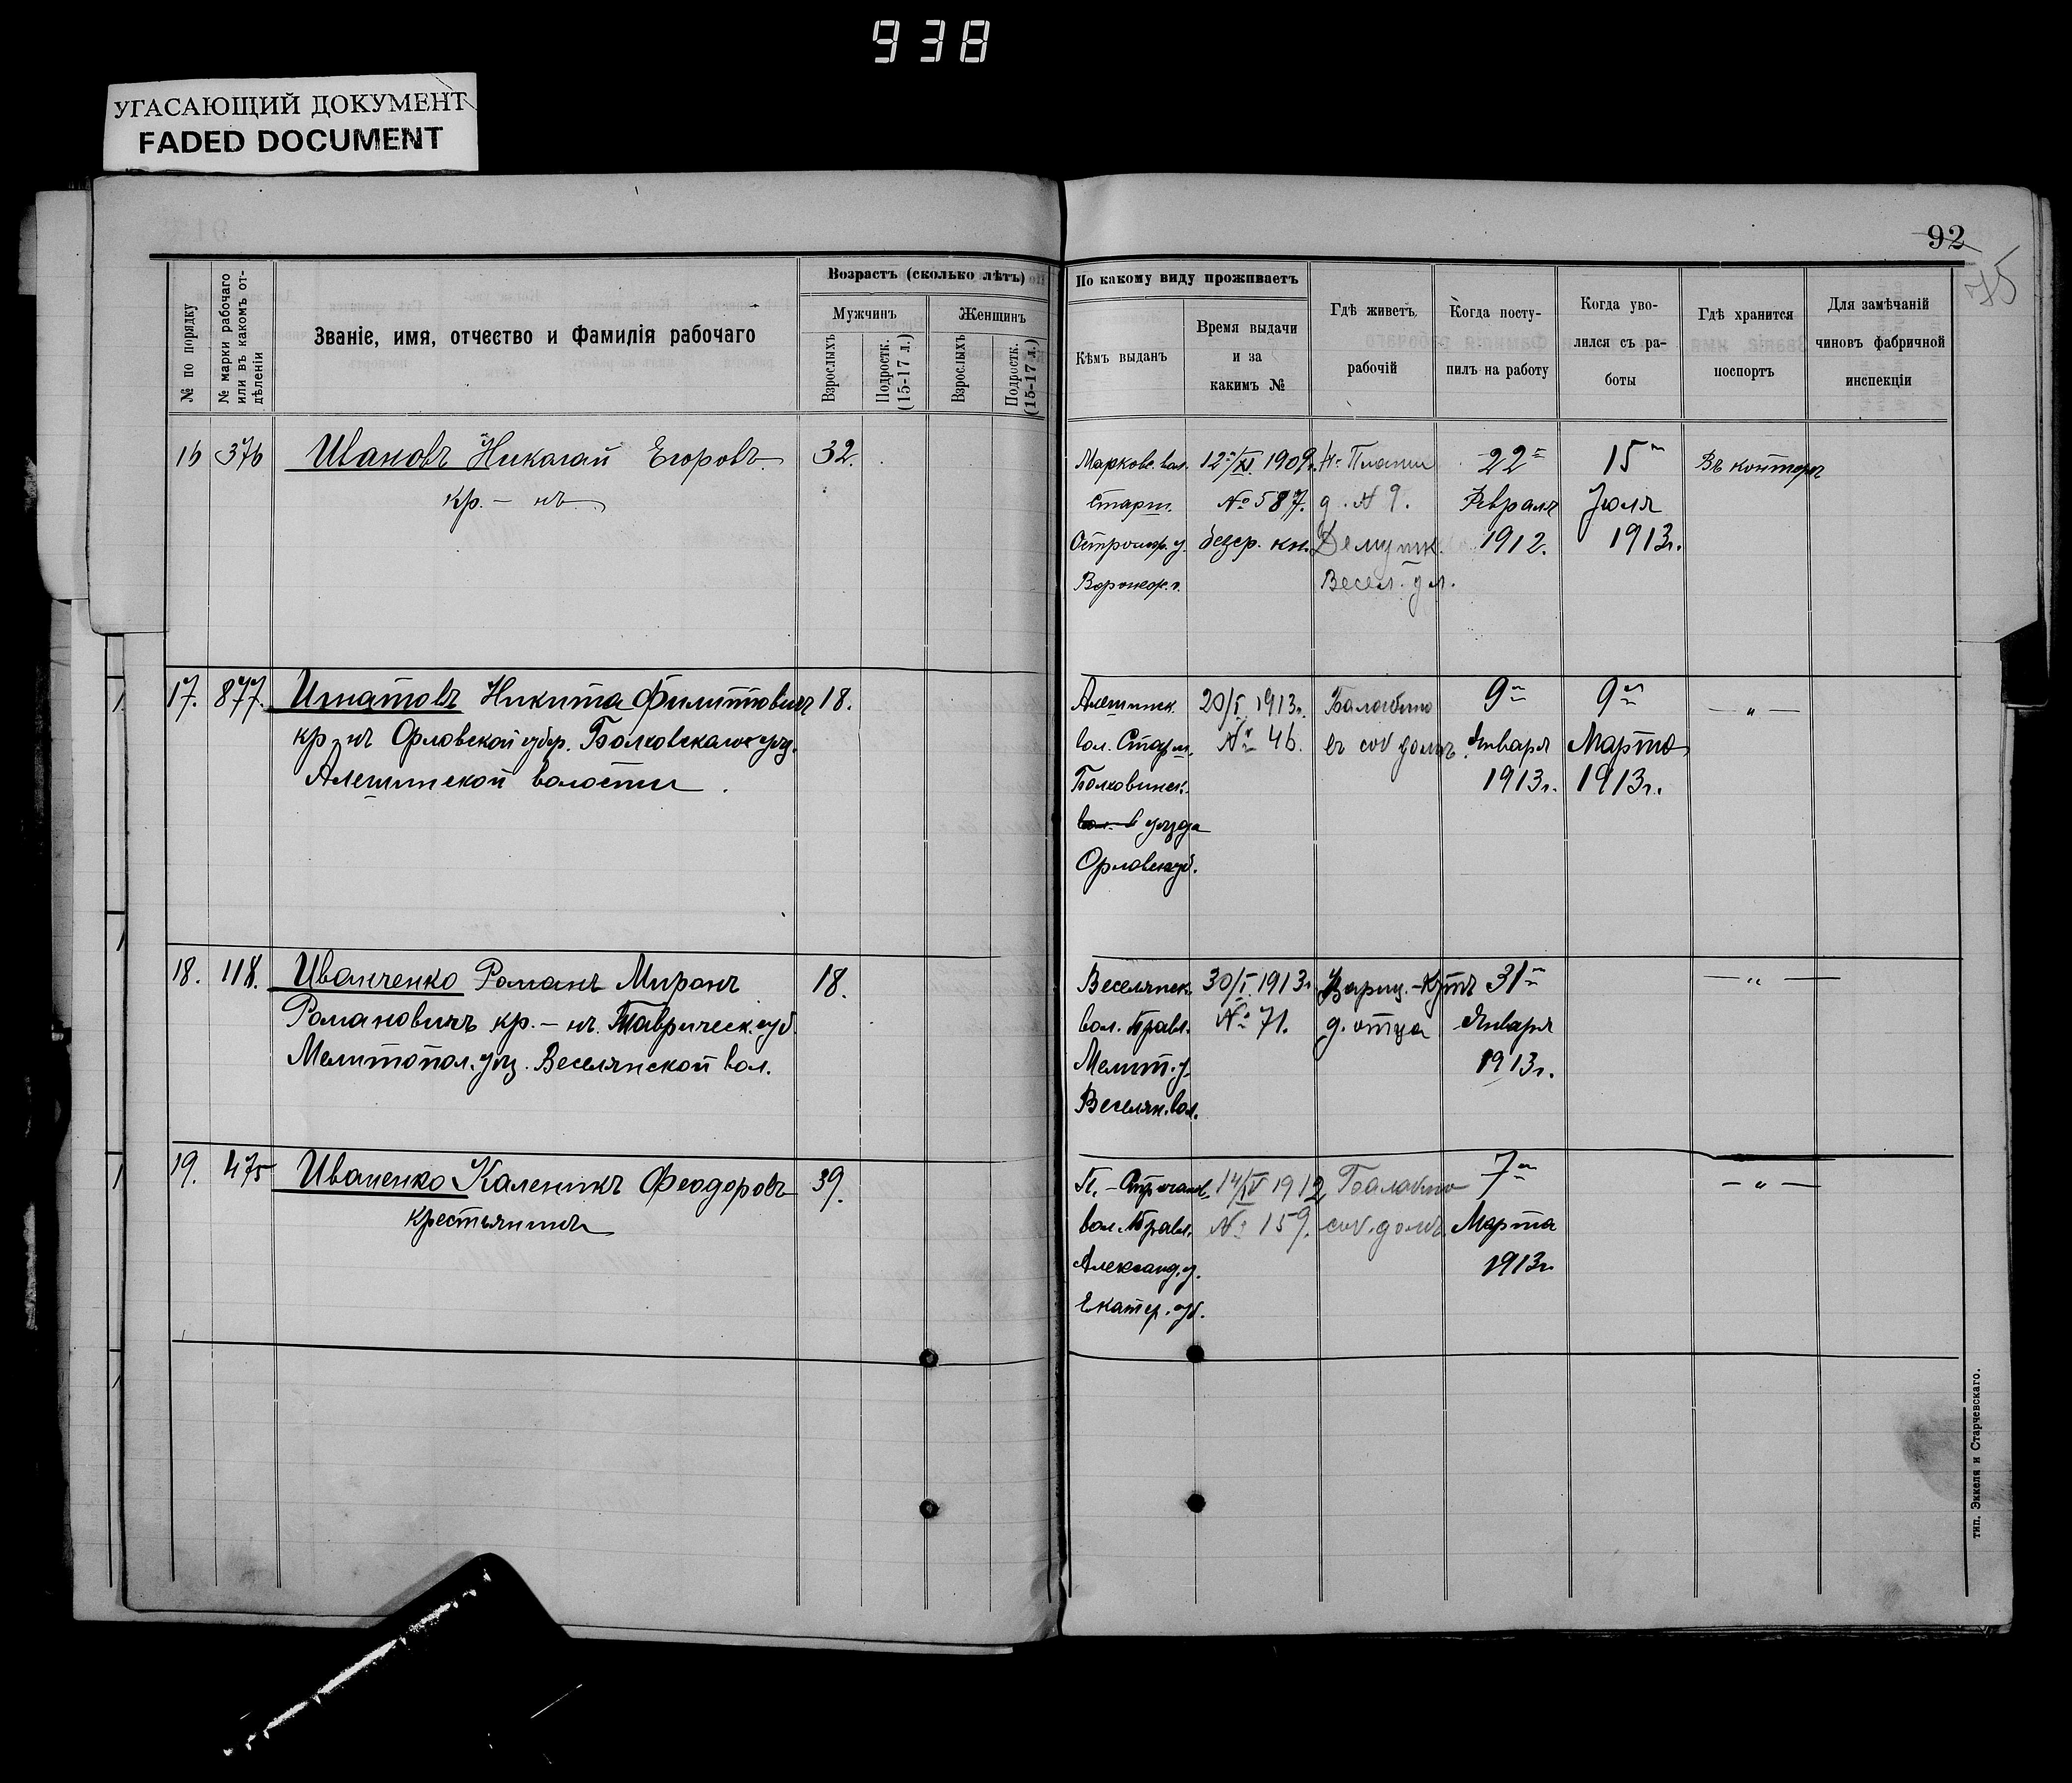 938
УГАСАЮЩИЙ ДОКУМЕНТ
FADED DOCUMENT
92
75
№ по порядку
№ марки рабочаго или въ какомъ отдѣленіи
Званіе, имя, отчество и Фамилія рабочаго
Возрастъ (сколько лѣтъ)
Мужчинъ
Женщинъ
Взрослыхъ
Подростк. (15-17 л.)
Взрослыхъ
Подростк. (15-17 л.)
По какому виду проживаетъ
Кѣмъ выданъ
Время выдачи
и за
какимъ №
Гдѣ живетъ
рабочій
Когда посту-
пилъ на работу
Когда уво-
лился съ ра-
боты
Гдѣ хранится
паспортъ
Для замѣчаній
чиновъ фабричной
инспекціи
16 376 Ивановъ Николай Егоровъ 32.
кр.-нъ
Марковс. вол.
Старш.
Острогож. у.
Воронеж. г.
12/XI 1909г.
№ 587.
безср. кн.
д. № 9.
Весел.
22
Февраля
1912.
15
Іюля
1913г.
Въ конторѣ
17. 877. Игнатовъ Никита Филипповичъ 18.
кр-нъ Орловской губ. Болховскаго уѣз.
Алешинской волости
Алешинск.
вол. Старш.
Болховинск.
уѣзда
Орловск губ.
20/I 1913г.
№ 46.
Балабино
въ соб домѣ.
9
Января
1913г.
9
Марта
1913г.
— " —
18. 118. Иванченко Романъ Миронъ 18.
Романовичъ кр.-нъ. Таврическ. губ.
Мелитопол. уѣз. Веселянской вол.
Веселянск.
вол. Правл.
Мелит. у.
Веселян. вол.
30/I 1913г
№ 71.
д. отца
31
Января
1913г.
— " —
19. 475 Иваненко Каленикъ Феодоровъ 39.
крестьянинъ
вол. Правл.
Александ. у.
Екатер. губ.
14/IV 1912
№ 159.
Балабино
соб. домъ.
7
Марта
1913г
— " —
тип. Эккеля и Старчевскаго.